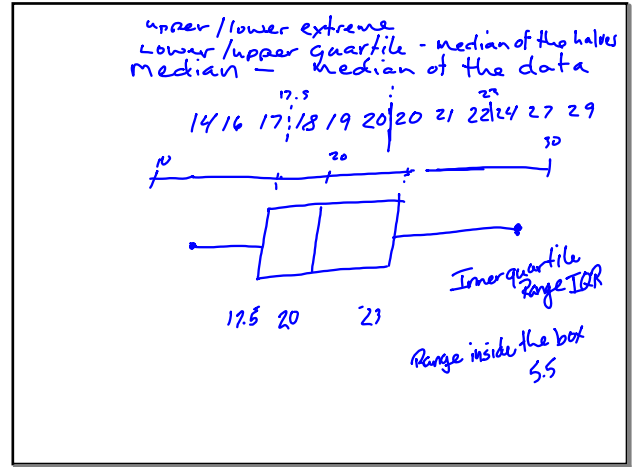 upper/lower extreme
Lower/upper quartile - median of the halves
Median - median of the data
17.5 23
14 16 17 18 19 20 20 21 22 24 27 29
10 20 30
Inner quartile
Range IQR
17.5 20 23
Range inside the box
5.5